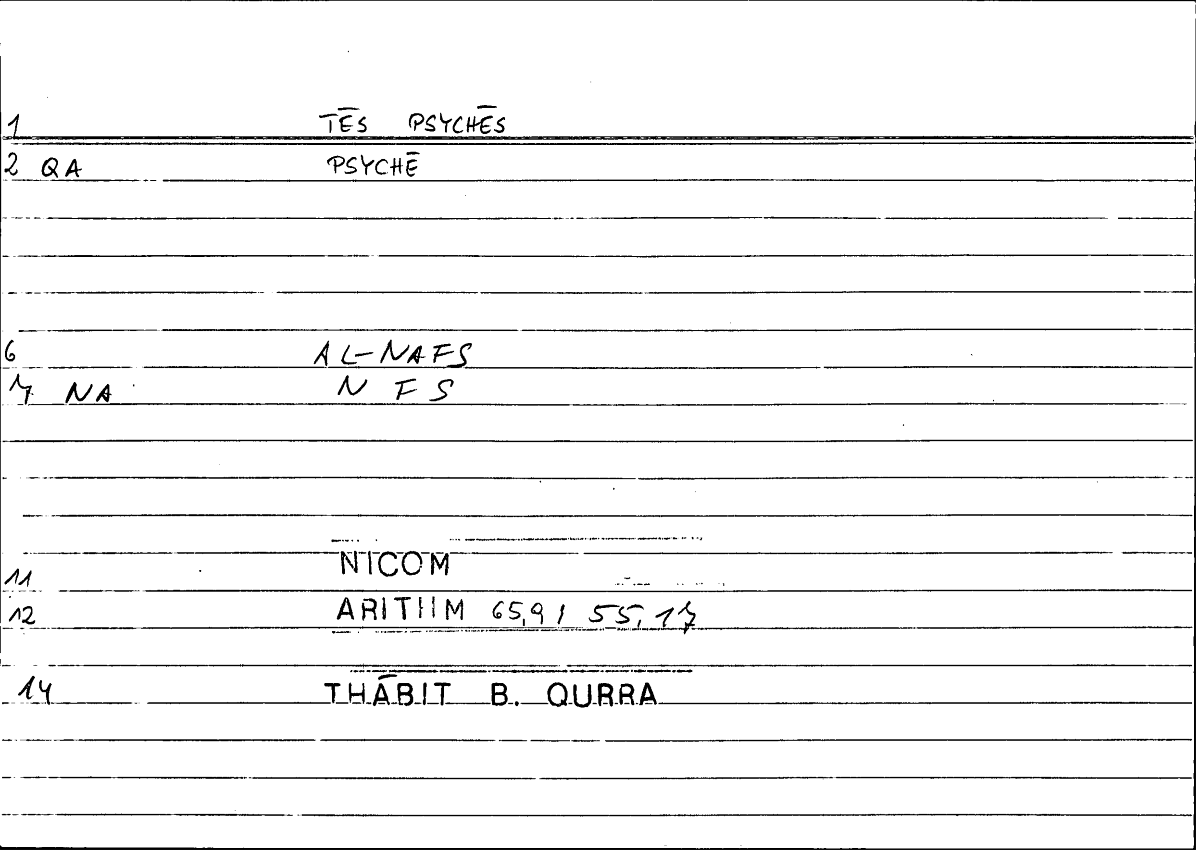 1 TĒS PSYCHĒS
2 QA PSYCHĒ
6 AL-NAFS
7 NA N F S
11 NICOM
12 ARITHM 65,9 / 55,17
14 THĀBIT B. QURRA